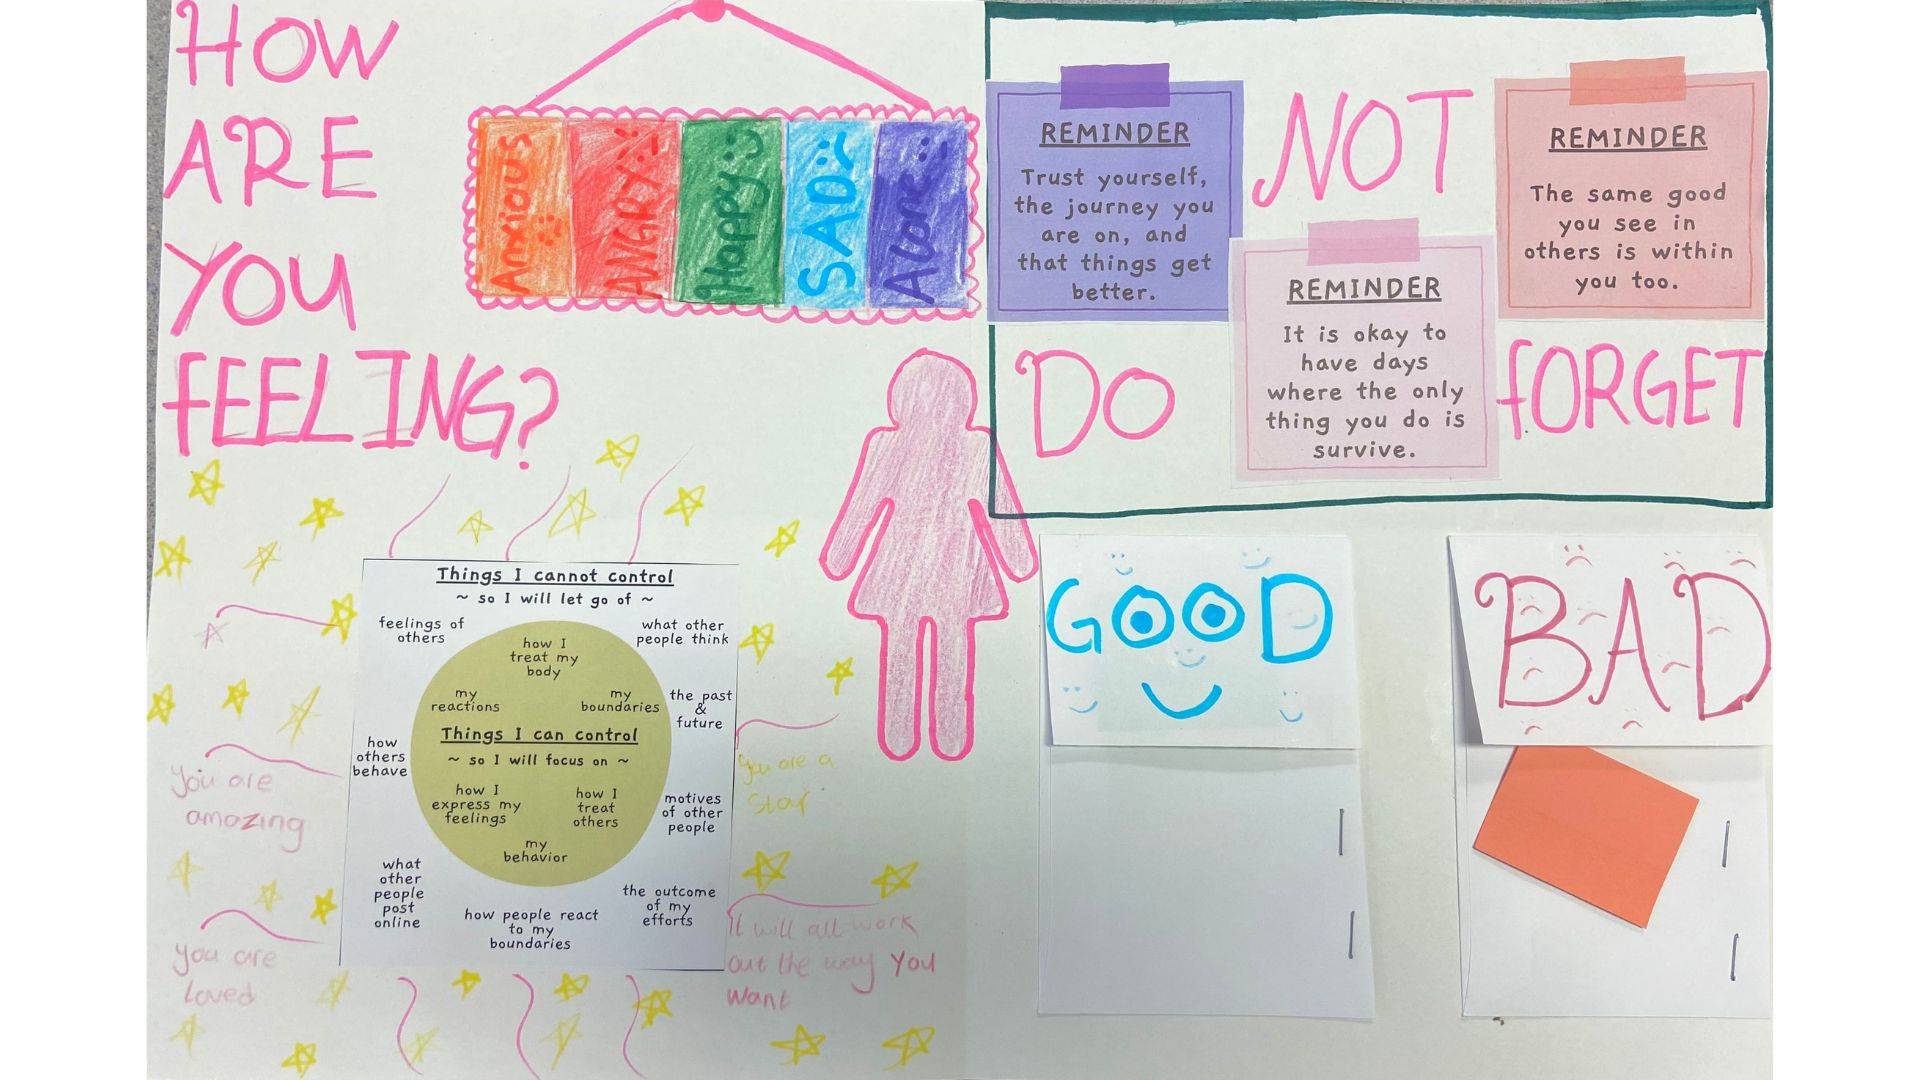 HOW
ARE
YOU
FEELING?
Anxious
ANGRY
Happy
SAD
Alone
REMINDER
Trust yourself,
the journey you
are on, and
that things get
better.
DO
NOT
FORGET
REMINDER
It is okay to
have days
where the only
thing you do is
survive.
REMINDER
The same good
you see in
others is within
you too.
Things I cannot control
~ so I will let go of ~
feelings of
others
what other
people think
the past
&
future
how
others
behave
motives
of other
people
what
other
people
post
online
the outcome
of my
efforts
how people react
to my
boundaries
how I
treat my
body
my
reactions
my
boundaries
Things I can control
~ so I will focus on ~
how I
express my
feelings
how I
treat
others
my
behavior
You are
amazing
you are
loved
You are a
star
It will all work
out the way you
want
GOOD
BAD